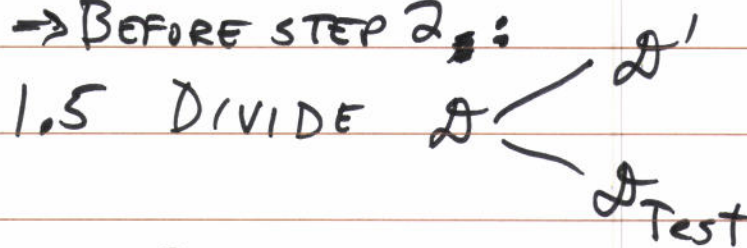 → BEFORE STEP 2.:
1.5 DIVIDE D
D'
D Test